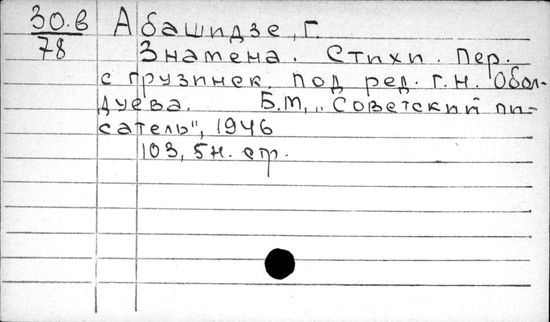 30.в
78
Абашидзе, Г.
Знамена. Стихи. Пер.
с грузинск. под ред. Г.Н. Обол-
дуева. Б.М, „Советский пи-
сатель", 1946
103, 5н. стр.